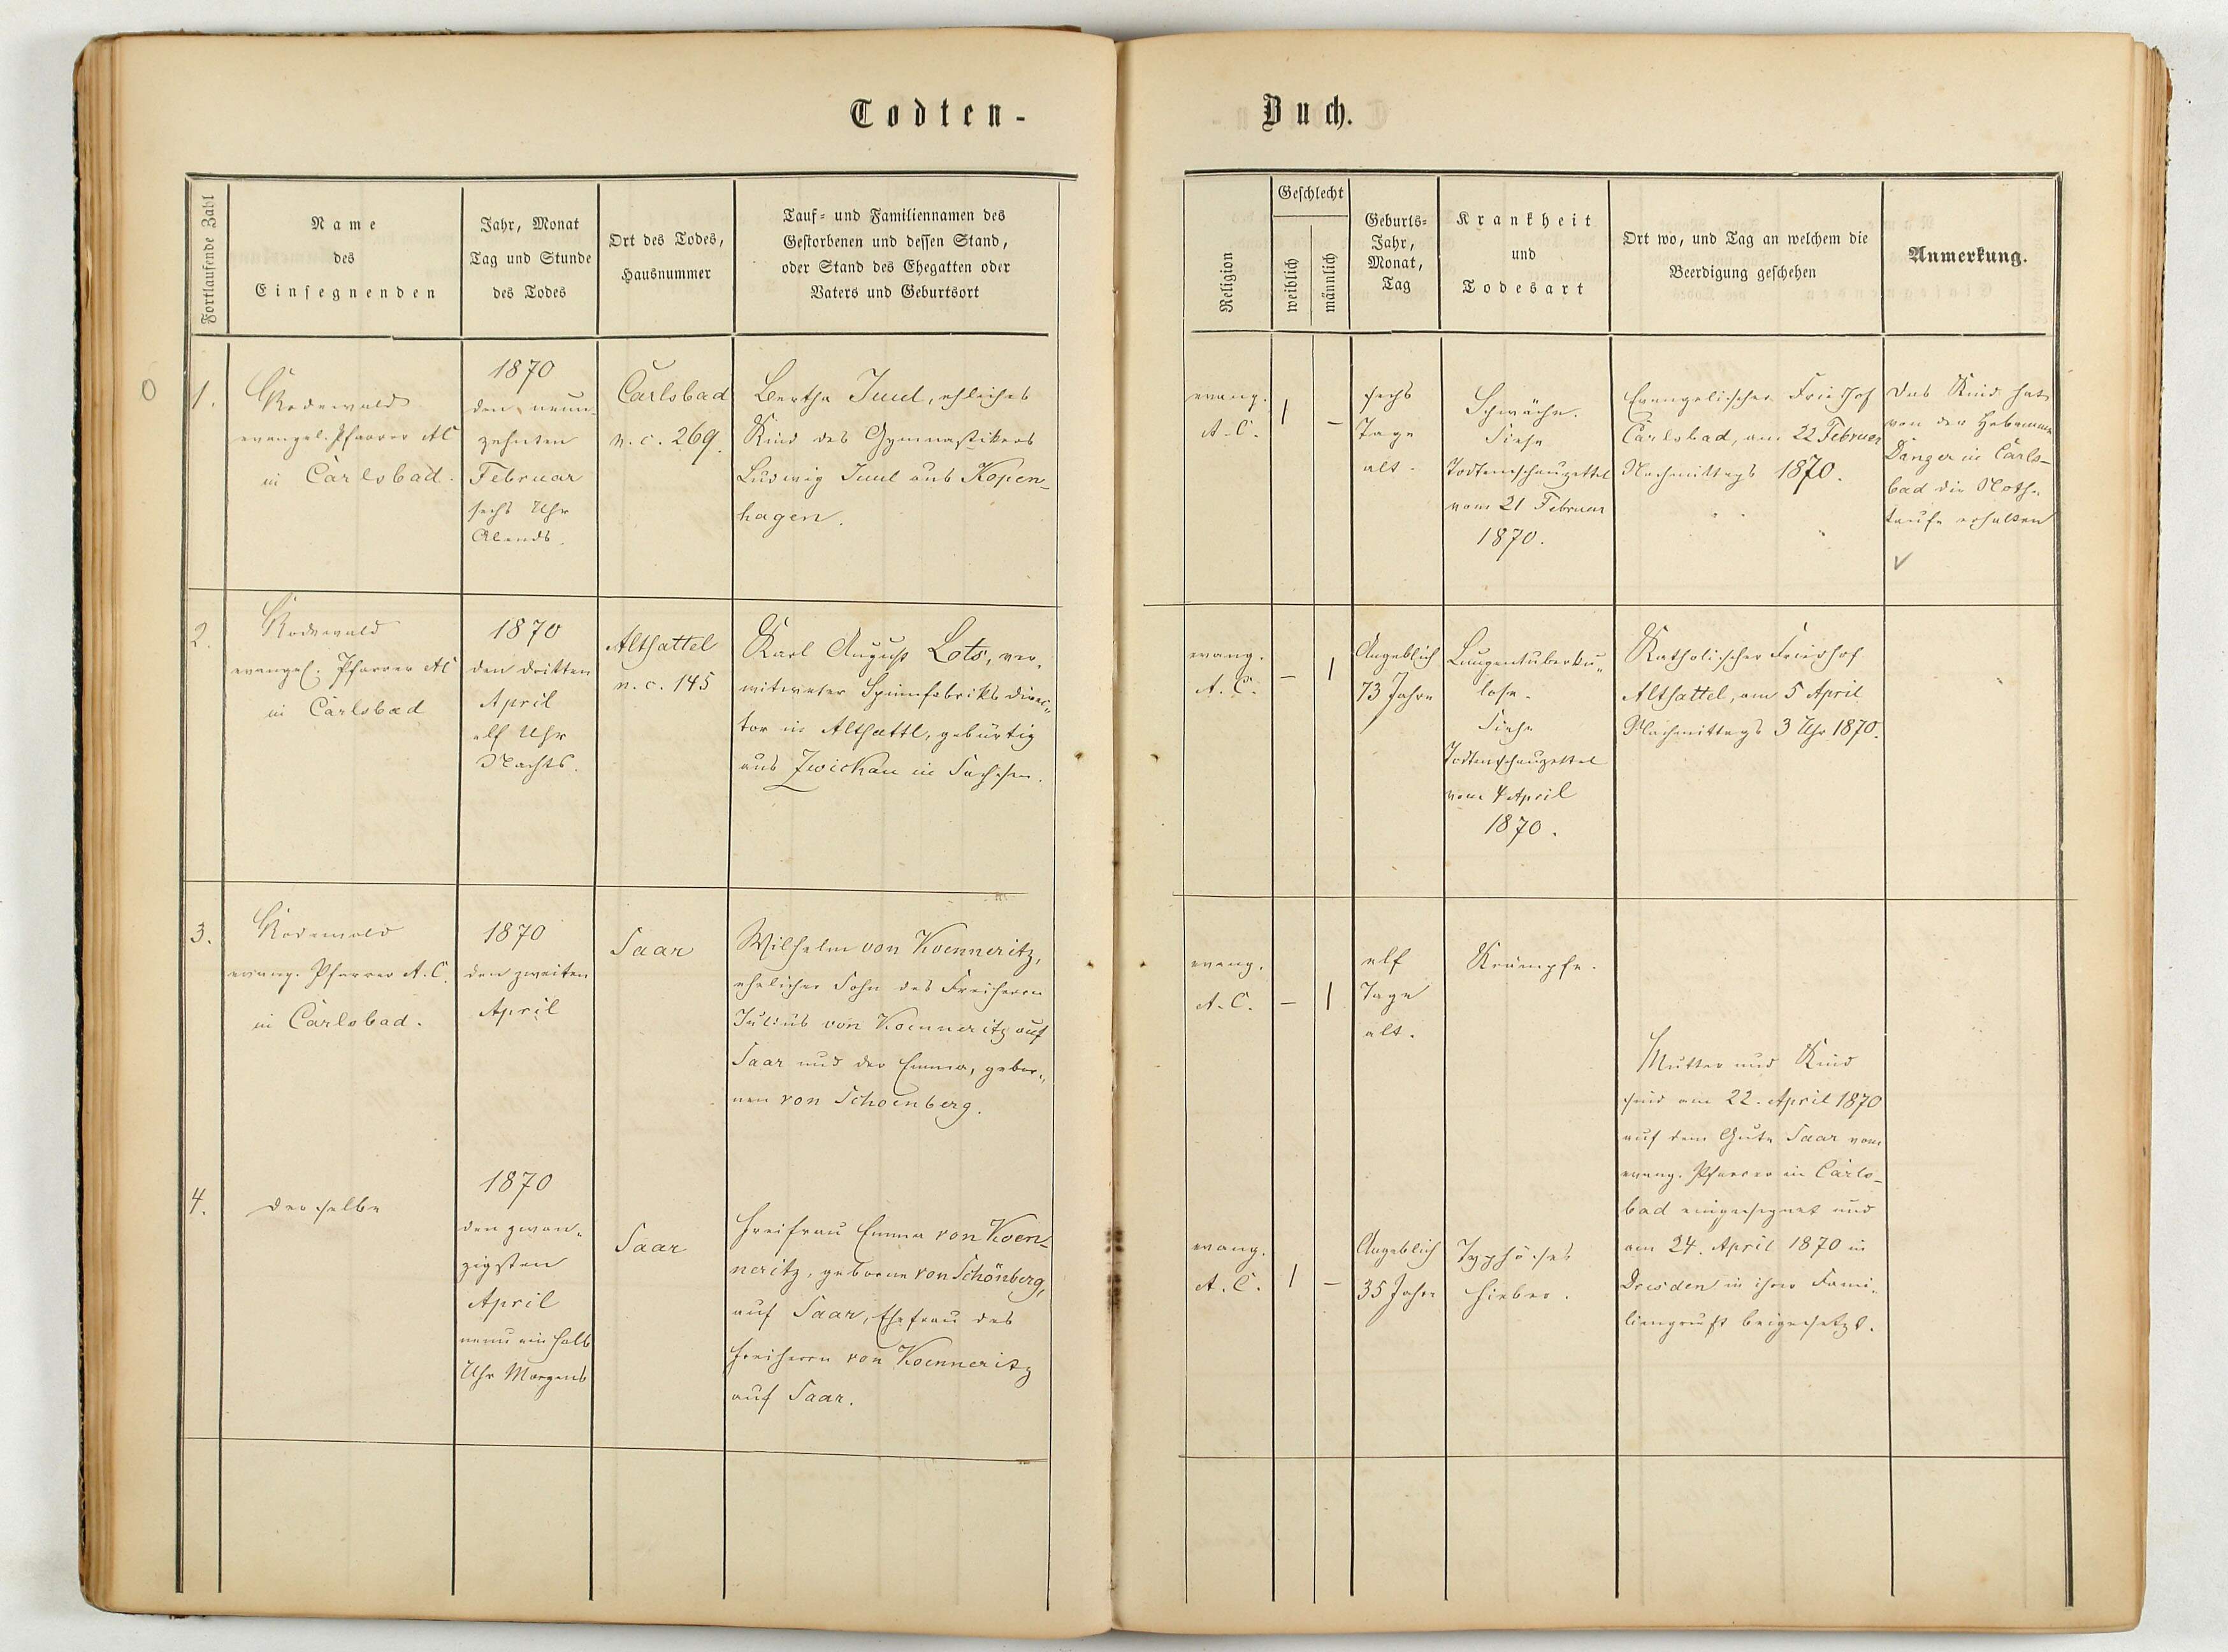 Todten-
Fortlaufende Zahl
Name
des
Einsegnenden
Jahr, Monat
Tag und Stunde
des Todes
Ort des Todes,
Hausnummer
Tauf- und Familiennamen des
Gestorbenen und dessen Stand,
oder Stand des Ehegatten oder
Vaters und Geburtsort
1.
Rodewald
evangel. Pfarrer AC
in Carlsbad.
1870
den neun-
zehnten
Februar
sechs Uhr
Abends.
Carlsbad
n. c. 269.
Bertha Juul, ehliches
Kind des Gymnastikers
Ludwig Juul aus Kopen-
hagen.
2.
Rodewald
evangel. Pfarrer AC
in Carlsbad
1870
den dritten
April
elf Uhr
Nachts.
Altsattel
n. c. 145
Karl August Lots, ver-
witweter Spinnfabriks Direc-
tor in Altsattl, gebürtig
aus Zwickau in Sachsen.
3.
Rodewald
evang. Pfarrer A. C.
in Carlsbad.
1870
den zweiten
April
Saar
Wilhelm von Koenneritz,
ehelicher Sohn des Freiherrn
Julius von Koenneritz auf
Saar und der Emma, gebor-
nen von Schoenberg.
4.
derselbe
1870
den zwan-
zigsten
April
neun ein halb
Uhr Morgens
Saar
Freifrau Emma von Koen-
neritz, geborne von Schönberg,
auf Saar, Ehefrau des
Freiherrn von Koenneritz
auf Saar.
Buch.
Religion
Geschlecht
weiblich
männlich
Geburts-
Jahr,
Monat,
Tag
Krankheit
und
Todesart
Ort wo, und Tag an welchem die
Beerdigung geschehen
Anmerkung.
evang.
A. C.
1
-
sechs
Tage
alt.
Schwäche.
Siehe
Todtenschauzettel
vom 21 Februar
1870.
Evangelischer Friedhof
Carlsbad, am 22 Februar
Nachmittags 1870.
Das Kind hat
von der Hebamme
Danzer in Carls-
bad die Noth-
taufe erhalten
evang.
A. C.
-
1
Angeblich
73 Jahre
Lungentuberku-
lose.
Siehe
Todtenschauzettel
vom 4 April
1870.
Katholischer Friedhof
Altsattel, am 5 April
Nachmittags 3 Uhr 1870.
evang.
A. C.
-
1
elf
Tage
alt.
Krämpfe.
Mutter und Kind
sind am 22. April 1870
auf dem Gute Saar vom
evang. Pfarrer in Carls-
bad eingesegnet und
am 24. April 1870 in
Dresden in ihrer Fami-
liengruft beigesetzt.
evang.
A. C.
1
-
Angeblich
35 Jahre
Typhöses
Fieber.